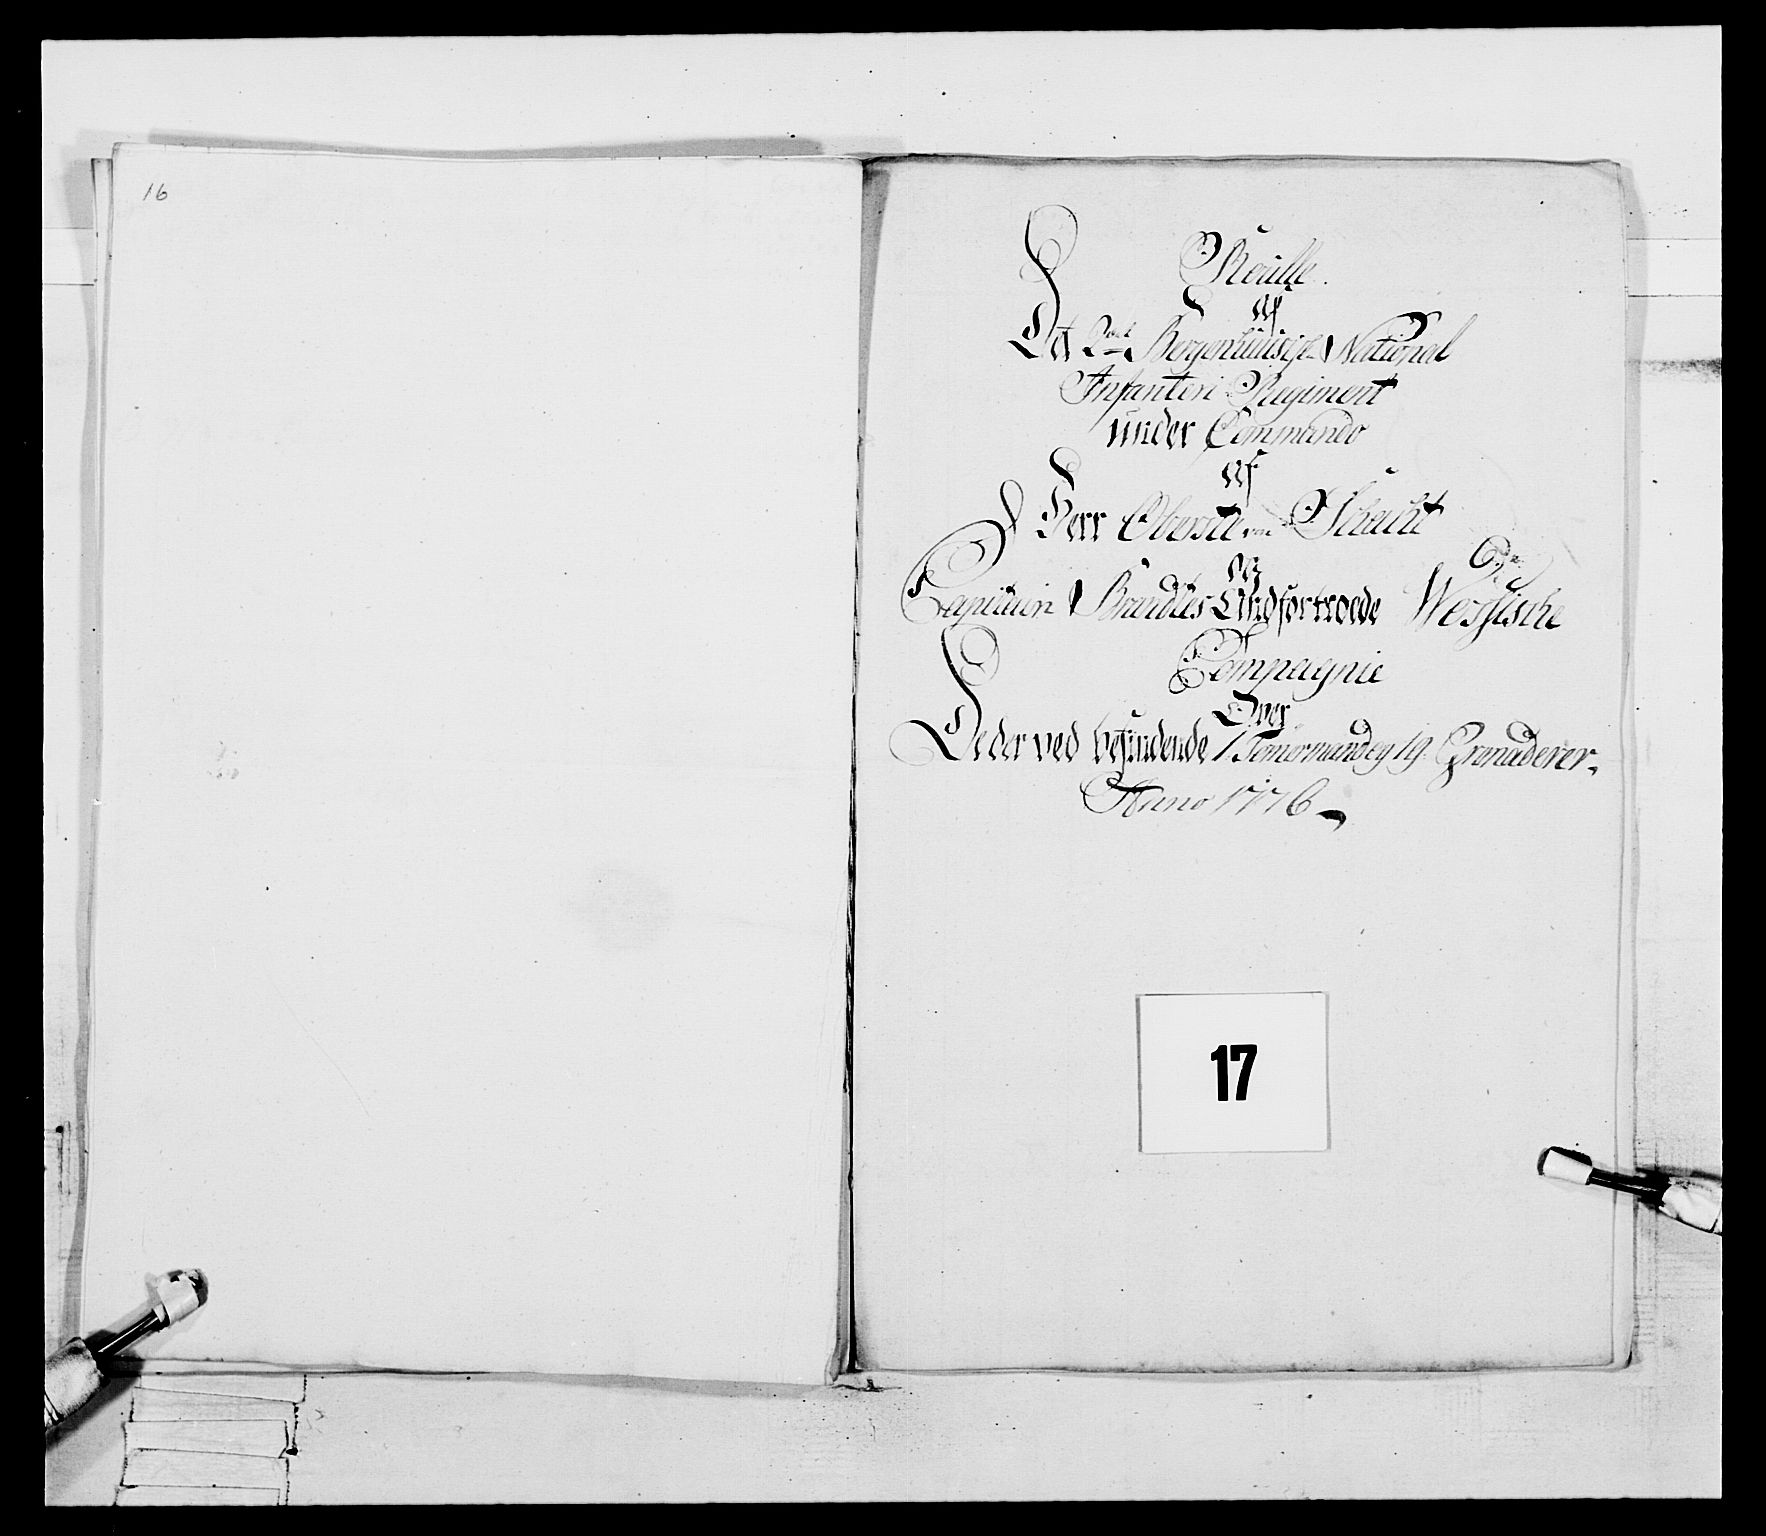 16
Roulle.
Af
Det 2det Bergenhuusische National
Infanteri Regiment
under Commando
Af
Herr Oberste von Schacht
Capitain Brandtes Andfortroede Wossische
Compagnie
Over
De der ved befindende 1 Tömermand og 19 Grenaderer
Anno 1776
17